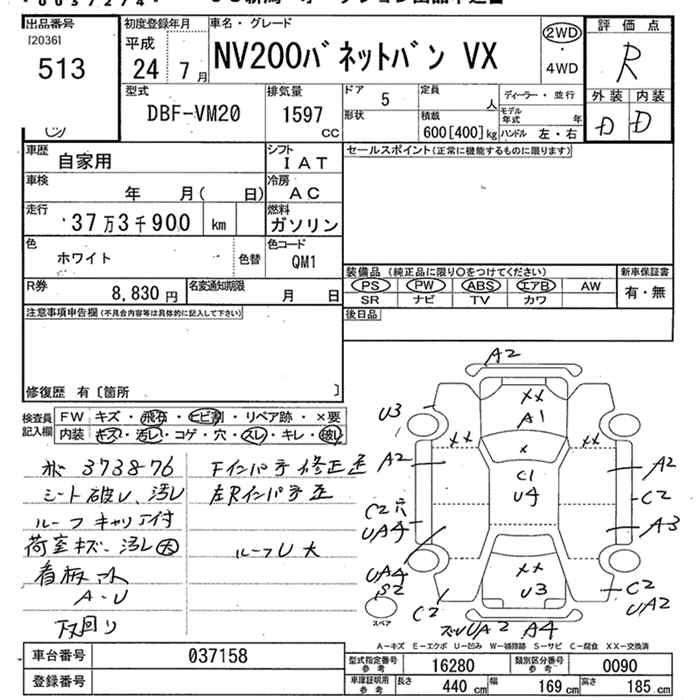 出品番号
[2036]
513
初度登録年月
平成
24 7月
車名・グレード
NV200バネットバン VX
2WD
・
4WD
評価点
R
外装 内装
D D
型式
DBF-VM20
排気量
1597
CC
ドア 5
形状
定員
人
積載
600[400]kg
ディーラー・並行
モデル年式 年
ハンドル 左・右
車歴
自家用
シフト
IAT
セールスポイント(正常に機能するものに限ります)
車検
年 月( 日)
冷房
AC
走行
37万3千900 km
燃料
ガソリン
色
ホワイト
色替
色コード
QM1
装備品(純正品に限り○をつけてください)
PS PW ABS エアB AW
SR ナビ TV カワ
新車保証書
有・無
R券
8,830円
名変通知期限
月 日
後日品
注意事項申告欄(不具合内容等は具体的に記入して下さい)
修復歴 有〔箇所 〕
検査員記入欄
FW キズ・飛石・ヒビ割・リペア跡・×要
内装 キズ・汚レ・コゲ・穴・スレ・キレ・破レ
373876
シート破レ、汚レ
ルーフキャリア付
荷室キズ、汚レ大
看板アト
A-U
下回り
Fインパネ修正歪
左Rインパネ歪
ルーフU大
A2
XX
A1
U3
XX
XX
X
A2
A2
C1
U4
C2
C2穴
UA4
A3
UA4
S2
XX
U3
C2
UA2
C2
スペア
UA2
A4
A-キズ E-エクボ U-凹み W-補修跡 S-サビ C-腐食 XX-交換済
車台番号 037158
登録番号
型式指定番号参考 16280
類別区分番号参考 0090
車庫証明用参考
長さ 440cm
幅 169cm
高さ 185cm